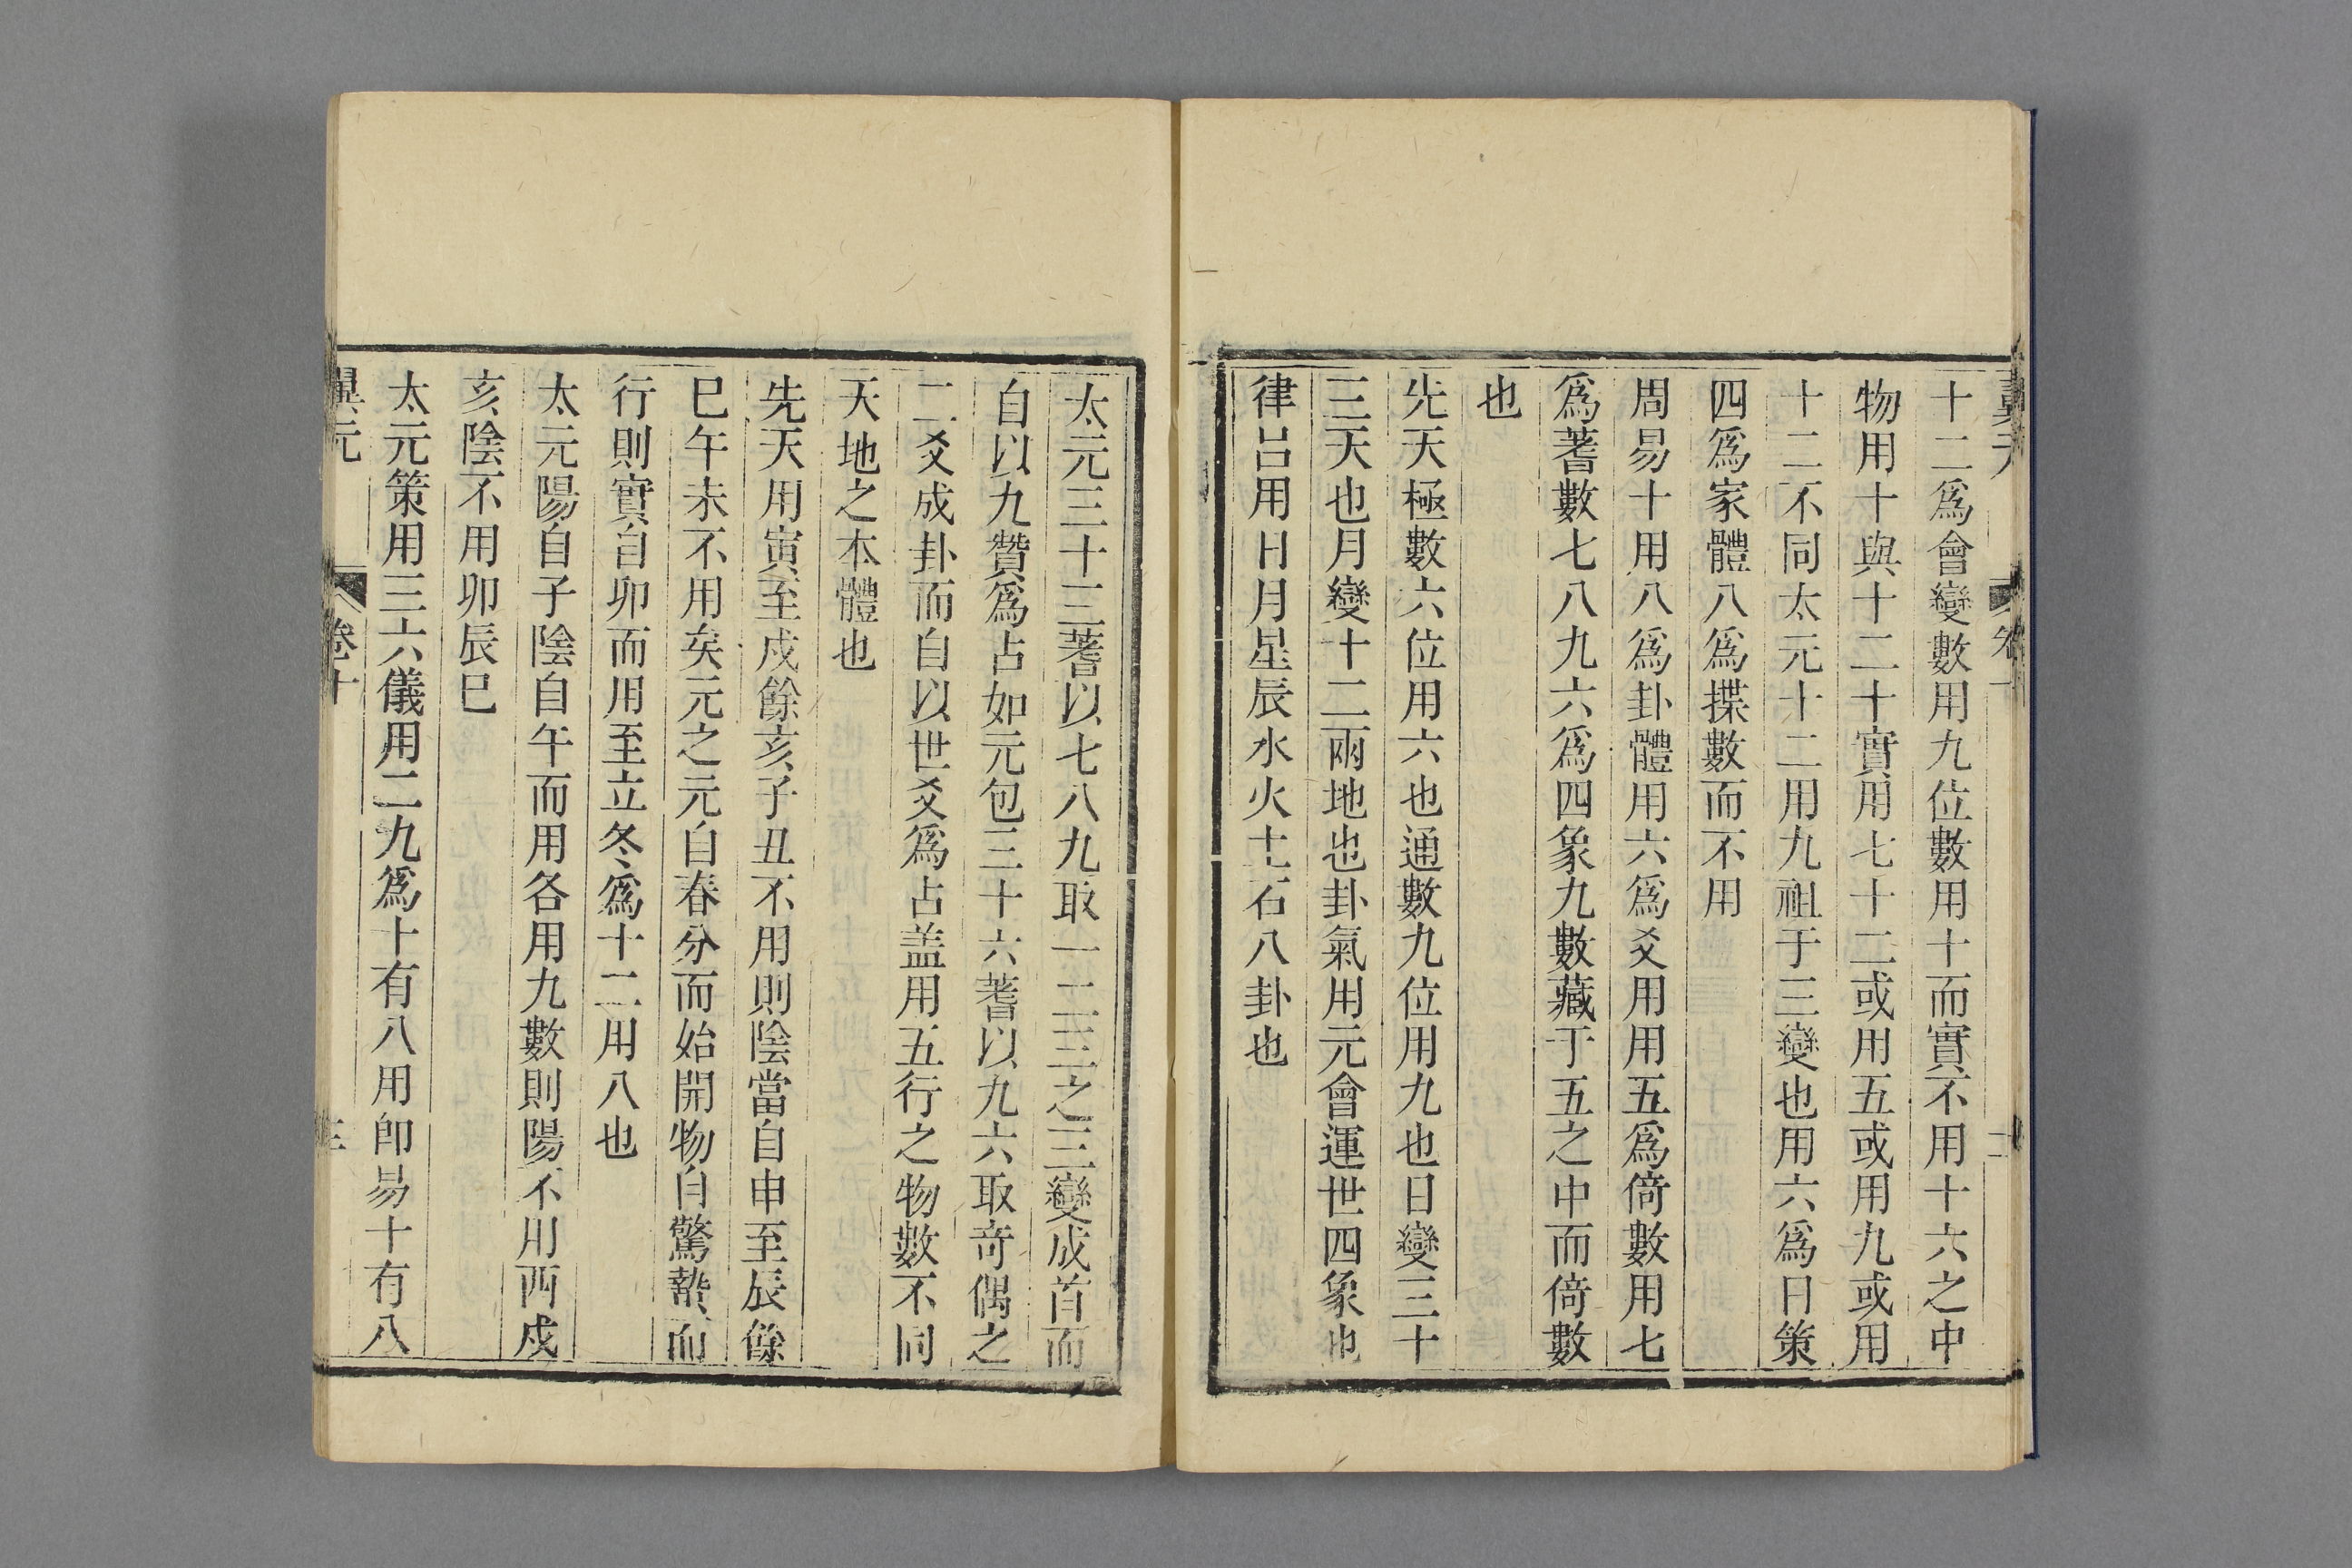 十二爲會變數用九位數用十而實不用十六之中
物用十與十二十實用七十二或用五或用九或用
十二不同太元十二用九祖于三變也用六爲日策
四爲家體八爲揲數而不用
周易十用八爲卦體用六爲爻用用五爲倚數用七
爲蓍數七八九六爲四象九數藏于五之中而倚數
也
先天極數六位用六也通數九位用九也日變三十
三天也月變十二兩地也卦氣用元會運世四象也
律呂用日月星辰水火土石八卦也
太元三十三蓍以七八九取一二三之三變成首而
自以九贊爲占如元包三十六蓍以九六取奇偶之
二爻成卦而自以世爻爲占盖用五行之物數不同
天地之本體也
先天用寅至戍餘亥子丑不用則陰當自申至辰餘
巳午未不用矣元之元自春分而始開物自驚蟄而
行則實自卯而用至立冬爲十二用八也
太元陽自子陰自午而用各用九數則陽不用酉戍
亥陰不用卯辰巳
太元策用三六儀用二九爲十有八用卽易十有八
翼元 卷十 三